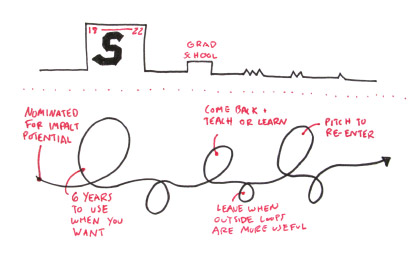 18 22
S
GRAD
SCHOOL
NOMINATED
FOR IMPACT
POTENTIAL
6 YEARS
TO USE
WHEN YOU
WANT
COME BACK +
TEACH OR LEARN
LEAVE WHEN
OUTSIDE LOOPS
ARE MORE USEFUL
PITCH TO
RE-ENTER